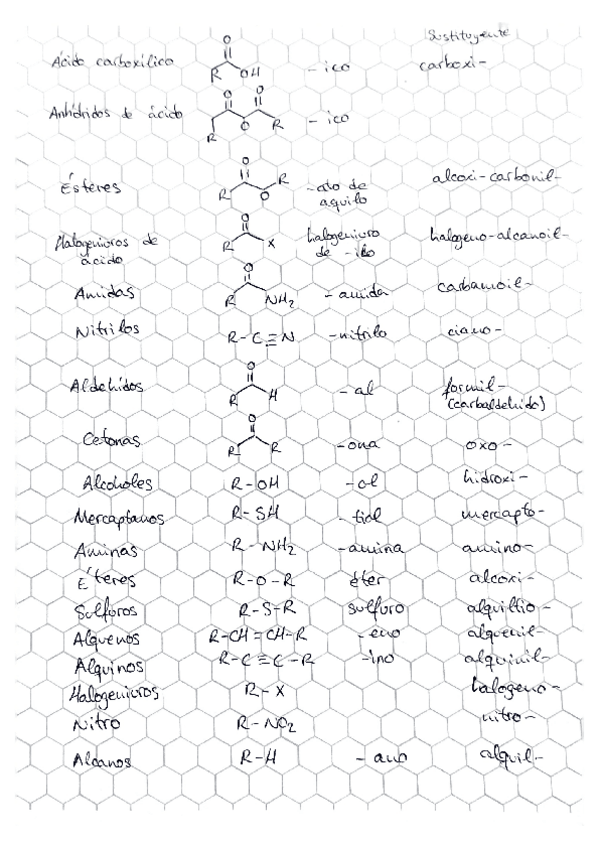 Sustituyente
Ácido carboxílico R O OH -ico carboxi-
Anhídridos de ácido R O O O R -ico
Ésteres R O O R -ato de aquilo alcoxi-carbonil-
Halogenuros de ácido R O X halogenuro de -ilo halogeno-alcanoil-
Amidas R O NH2 -amida carbamoil-
Nitrilos R-C≡N -nitrilo ciano-
Aldehídos R O H -al formil- (carbaldehido)
Cetonas R O R -ona oxo-
Alcoholes R-OH -ol hidroxi-
Mercaptanos R-SH -tiol mercapto-
Aminas R-NH2 -amina amino-
Éteres R-O-R éter alcoxi-
Sulfuros R-S-R sulfuro alquiltio-
Alquenos R-CH=CH-R -eno alquenil-
Alquinos R-C≡C-R -ino alquinil-
Halogenuros R-X halogeno-
Nitro R-NO2 nitro-
Alcanos R-H -ano alquil-